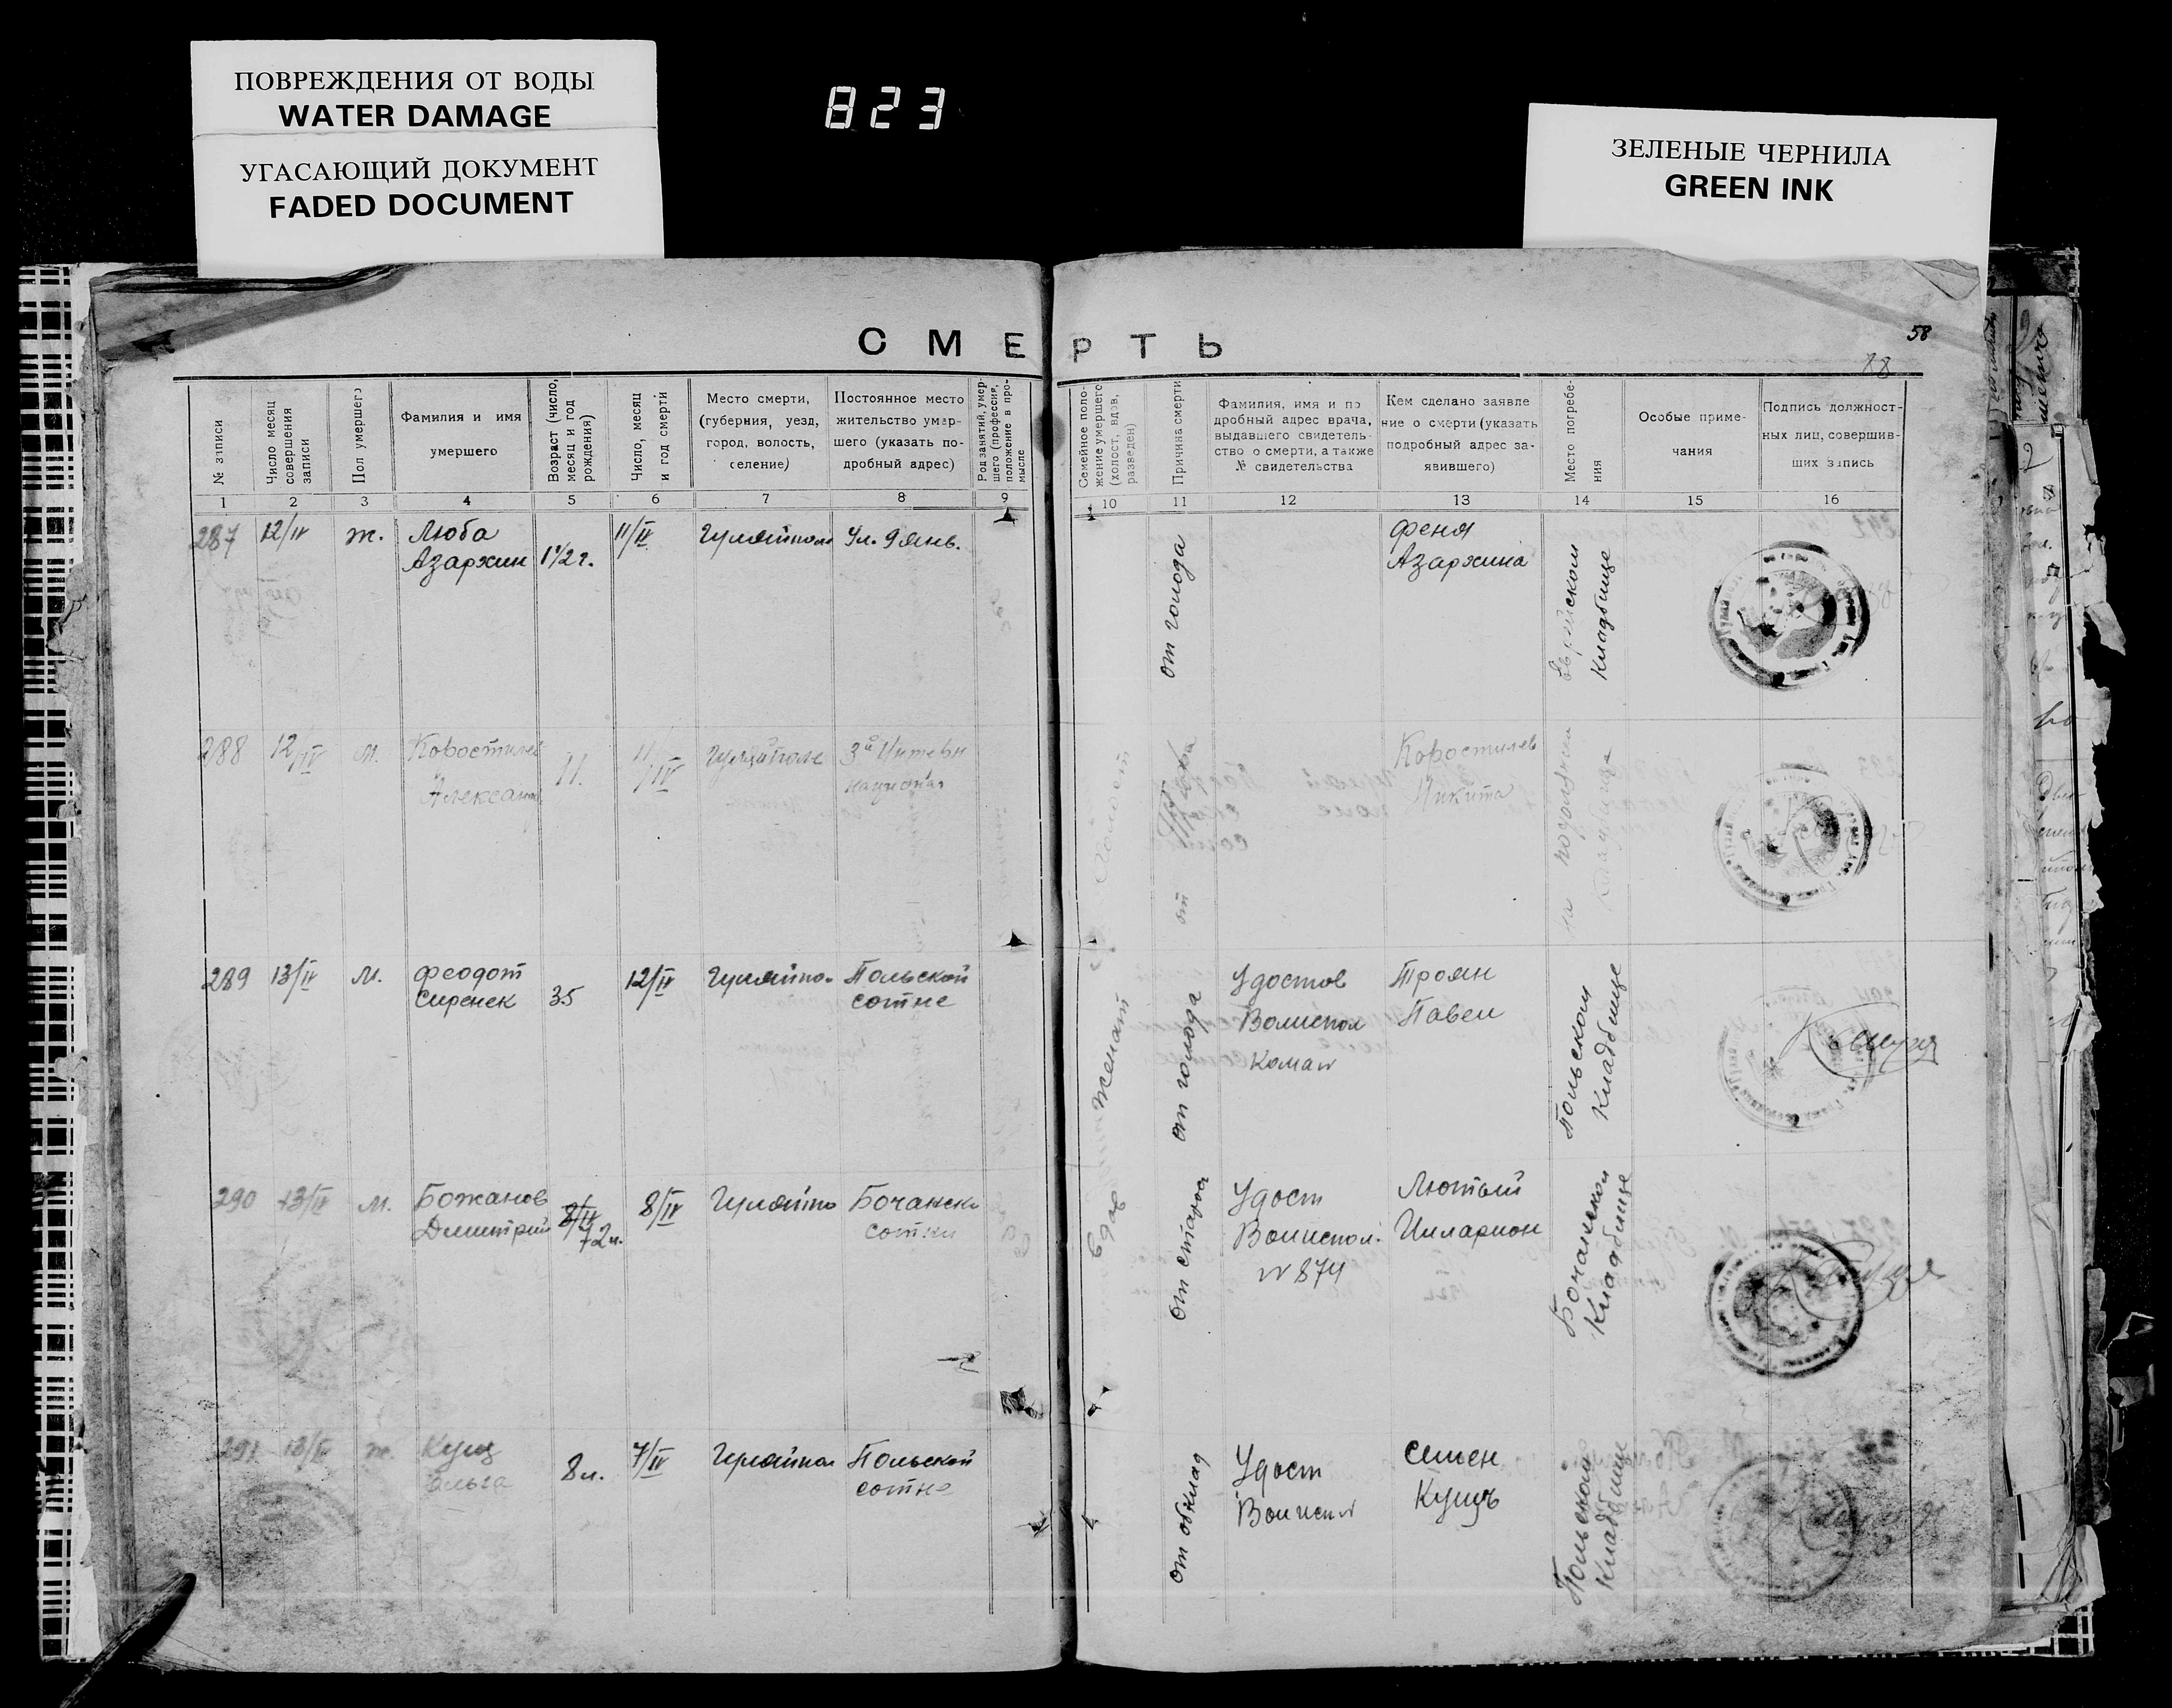 ПОВРЕЖДЕНИЯ ОТ ВОДЫ
WATER DAMAGE
УГАСАЮЩИЙ ДОКУМЕНТ
FADED DOCUMENT
823
ЗЕЛЕНЫЕ ЧЕРНИЛА
GREEN INK
СМЕРТЬ
58
88
№ записи
Число месяц
совершения
записи
Пол умершего
Фамилия и имя
умершего
Возраст (число,
месяц и год
рождения)
Число, месяц
и год смерти
Место смерти,
(губерния, уезд,
город, волость,
селение)
Постоянное место
жительство умер-
шего (указать по-
дробный адрес)
Род занятий, умер-
шего (профессия,
положение в про-
мысле
Семейное поло-
жение умершего
(холост, вдов,
разведен)
Причина смерти
Фамилия, имя и по
дробный адрес врача,
выдавшего свидетель-
ство о смерти, а также
№ свидетельства
Кем сделано заявле
ние о смерти (указать
подробный адрес за-
явившего)
Место погребе-
ния
Особые приме-
чания
Подпись должност-
ных лиц, совершив-
ших запись
1 2 3 4 5 6 7 8 9 10 11 12 13 14 15 16
287 12/IV ж. Люба
Азархин 1 1/2 г. 11/IV Гуляйполе Ул. 9 янв.
от голода
Феня
Азархина
Еврейском
Кладбище
288 12/IV м. Коростилев
Александ 11/IV Гуляйполе 3й Интерн
национал
Холост
от
Коростилев
Никита
на
289 13/IV м. Феодот
Сиренек 35 12/IV Гуляйпо. Польской
сотне
женат
от голода
Удостов
Волиспол
Троян
Павел
Польском
Кладбище
290 13/IV м. Божанов
Димитрий 8/IV 72 л. 8/IV Гуляйпо Бочанск
сотни
вдов
от старос
Удост
Волиспол.
N 874
Лютый
Илларион
Бочанском
Кладбище
291 13/IV ж. Кущ
Ольга 8 л. 7/IV Гуляйпол Польской
сотне
Удост
Волиспол
Семен
Кущъ
Польском
Кладбище